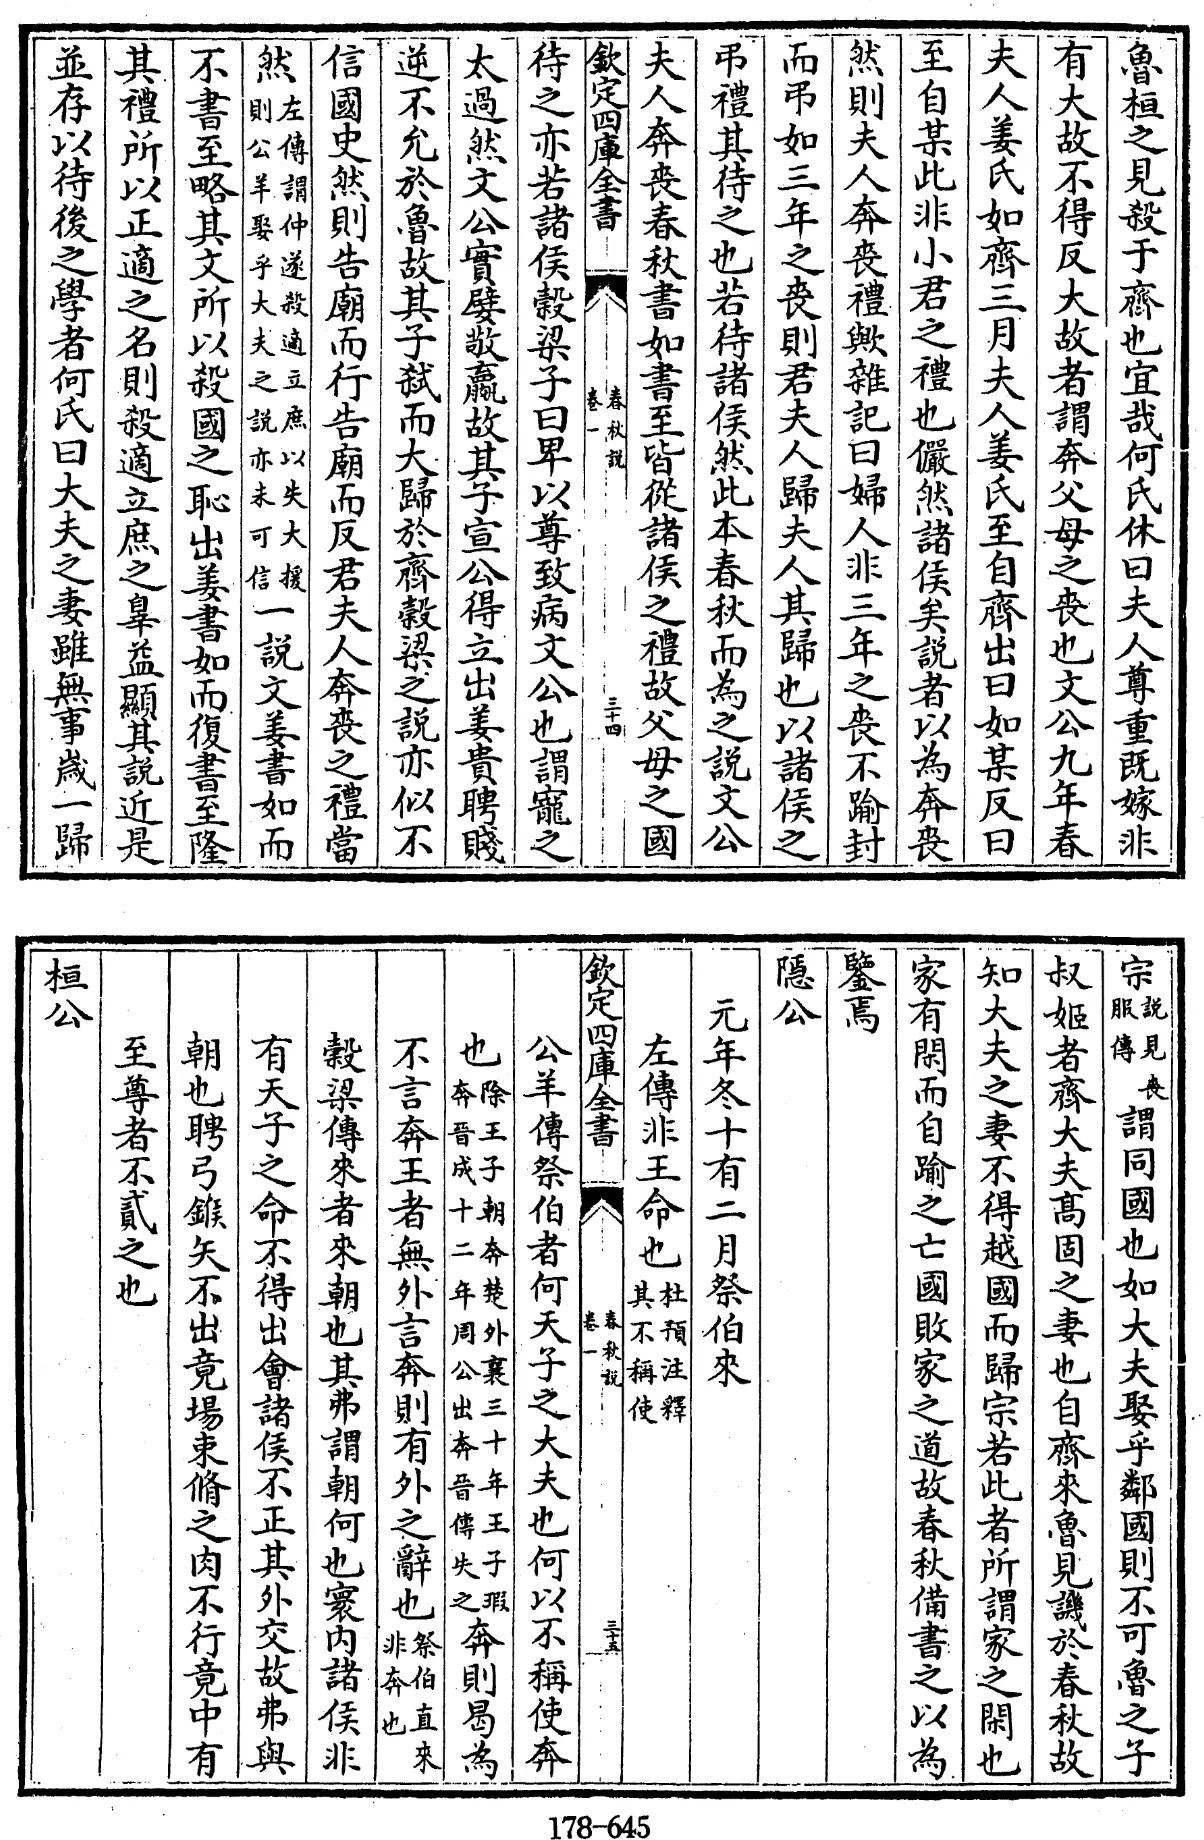 魯桓之見殺于齊也宜哉何氏休曰夫人尊重既嫁非
有大故不得反大故者謂奔父母之喪也文公九年春
夫人姜氏如齊三月夫人姜氏至自齊出曰如某反曰
至自某此非小君之禮也儼然諸侯矣説者以為奔喪
然則夫人奔喪禮歟雜記曰婦人非三年之喪不踰封
而弔如三年之喪則君夫人歸夫人其歸也以諸侯之
弔禮其待之也若待諸侯然此本春秋而為之説文公
夫人奔喪春秋書如書至皆從諸侯之禮故父母之國
欽定四庫全書
春秋説
卷一
三十四
待之亦若諸侯穀梁子曰卑以尊致病文公也謂寵之
太過然文公實嬖敬嬴故其子宣公得立出姜貴聘賤
逆不允於魯故其子弑而大歸於齊穀梁之説亦似不
信國史然則告廟而行告廟而反君夫人奔喪之禮當
然左傳謂仲遂殺適立庶以失大援則公羊娶乎大夫之説亦未可信一説文姜書如而
不書至略其文所以殺國之恥出姜書如而復書至隆
其禮所以正適之名則殺適立庶之辠益顯其説近是
並存以待後之學者何氏曰大夫之妻雖無事歲一歸
宗説見喪服傳謂同國也如大夫娶乎鄰國則不可魯之子
叔姬者齊大夫髙固之妻也自齊來魯見譏於春秋故
知大夫之妻不得越國而歸宗若此者所謂家之閑也
家有閑而自踰之亡國敗家之道故春秋備書之以為
鑒焉
隱公
元年冬十有二月祭伯來
左傳非王命也杜預注釋其不稱使
欽定四庫全書
春秋説
卷一
三十五
公羊傳祭伯者何天子之大夫也何以不稱使奔
也除王子朝奔楚外襄三十年王子瑕奔晉成十二年周公出奔晉傳失之奔則曷為
不言奔王者無外言奔則有外之辭也祭伯直來非奔也
穀梁傳來者來朝也其弗謂朝何也寰内諸侯非
有天子之命不得出會諸侯不正其外交故弗與
朝也聘弓鍭矢不出竟場束脩之肉不行竟中有
至尊者不貳之也
桓公
178-645